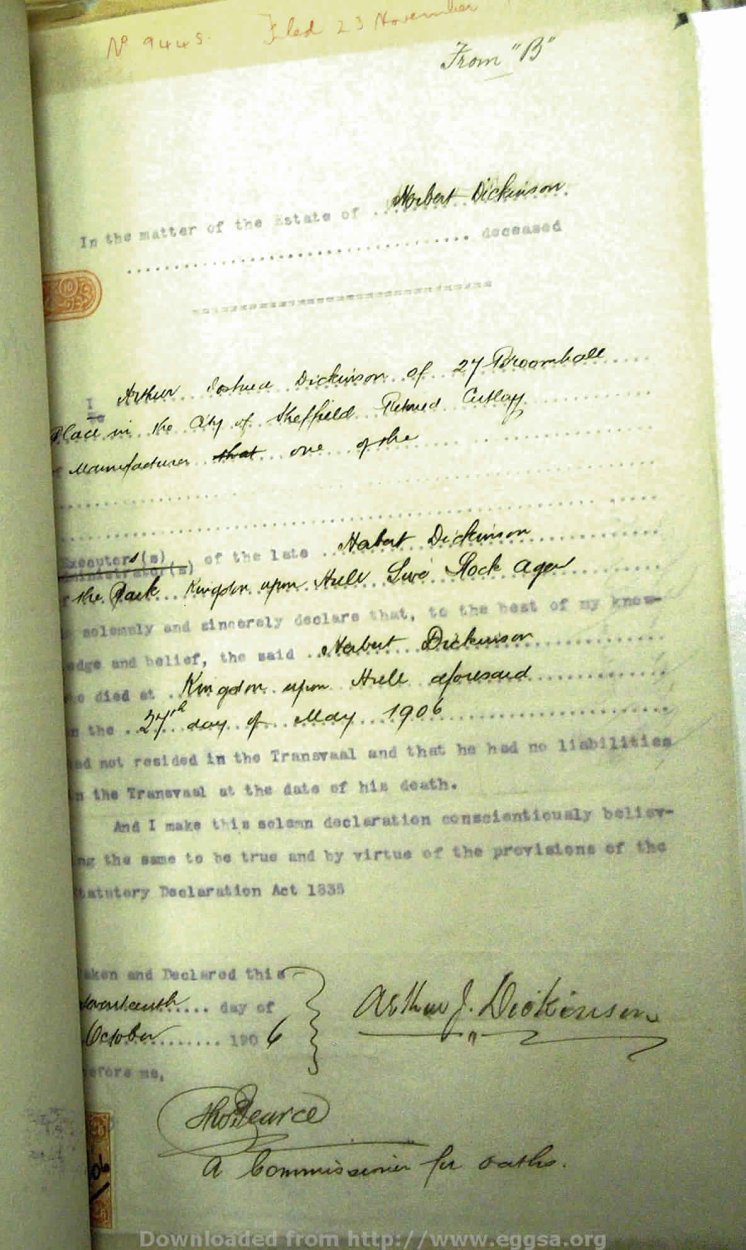 No 9445. Filed 23 November
From "B"
In the matter of the Estate of .. Norbert Dickinson
.................................... deceased
I Arthur Joshua Dickinson of 27 Broomhall
Place in the City of Sheffield Retired Cutlery
Manufacturer that one of the
Executors(s)
ministrator(s) of the late .. Norbert Dickinson
the Park Kingston upon Hull Live Stock Agent
solemnly and sincerely declare that, to the best of my know-
edge and belief, the said .. Norbert Dickinson
died at .. Kingston upon Hull aforesaid
the .. 27th day of May 1906
ad not resided in the Transvaal and that he had no liabilities
n the Transvaal at the date of his death.
And I make this solemn declaration conscientiously believ-
ng the same to be true and by virtue of the provisions of the
tatutory Declaration Act 1835
aken and Declared this
seventeenth ..... day of
October ........ 190 6
efore me,
Arthur J. Dickinson
Thos Pearce
A Commissioner for oaths.
Downloaded from http://www.eggsa.org